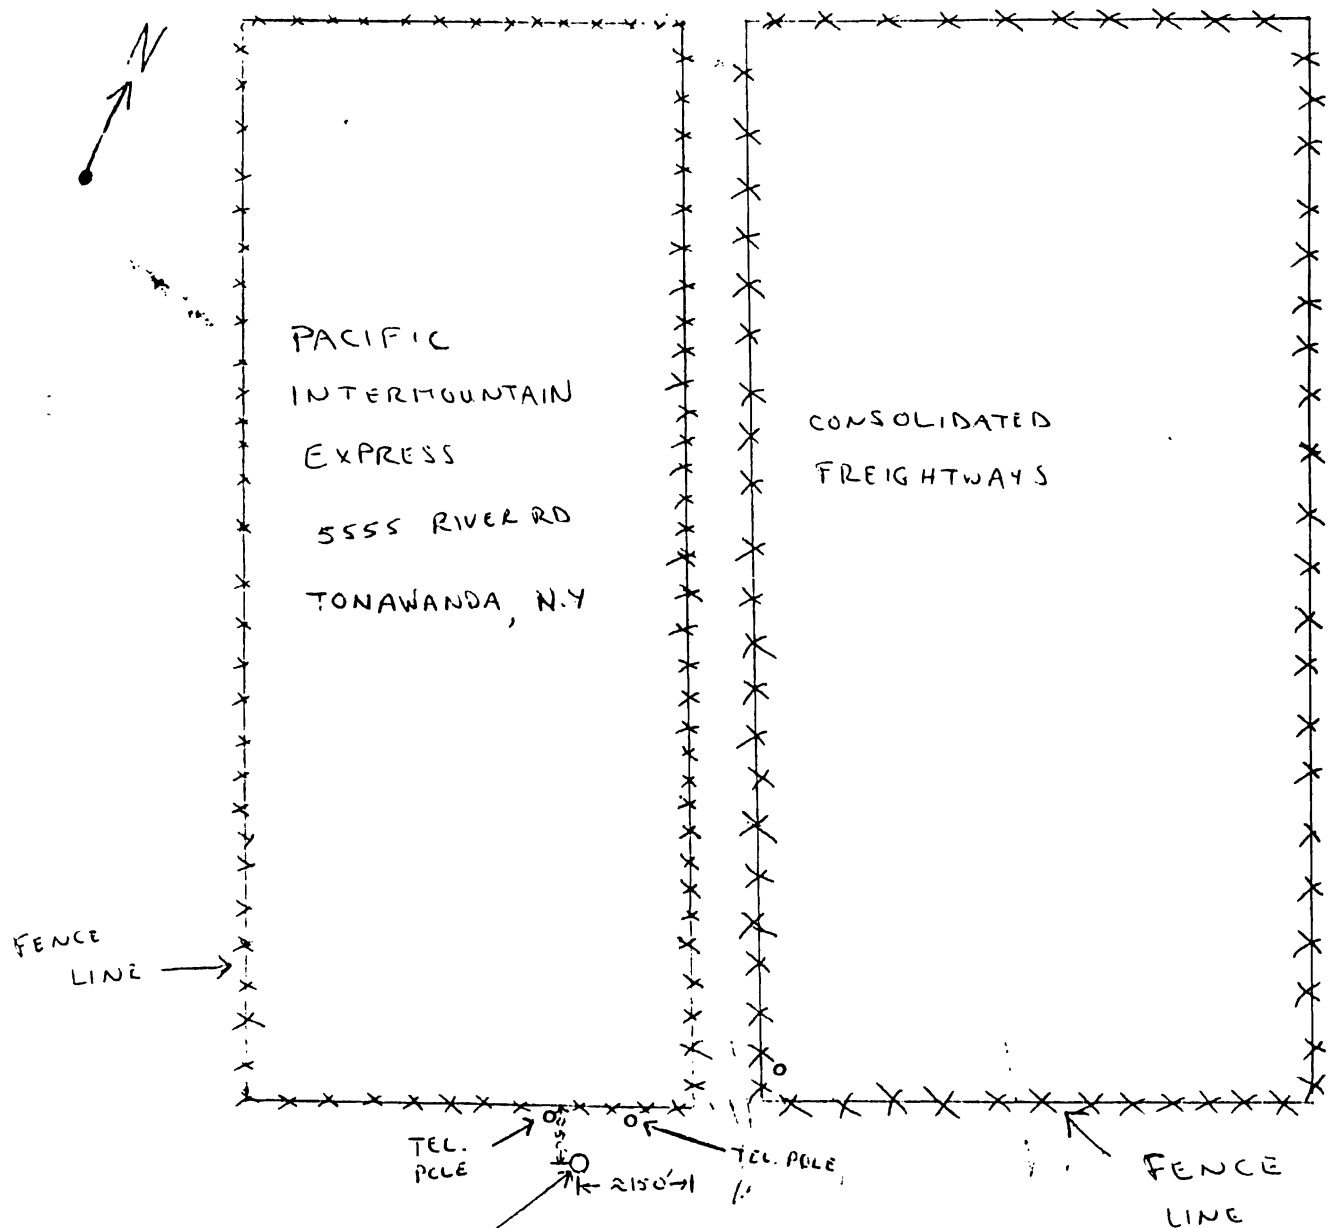 N
PACIFIC
INTERMOUNTAIN
EXPRESS
5555 RIVER RD
TONAWANDA, N.Y
CONSOLIDATED
FREIGHTWAYS
FENCE
LINE
TEL.
POLE
≈50'
TEL. POLE
≈150'
FENCE
LINE